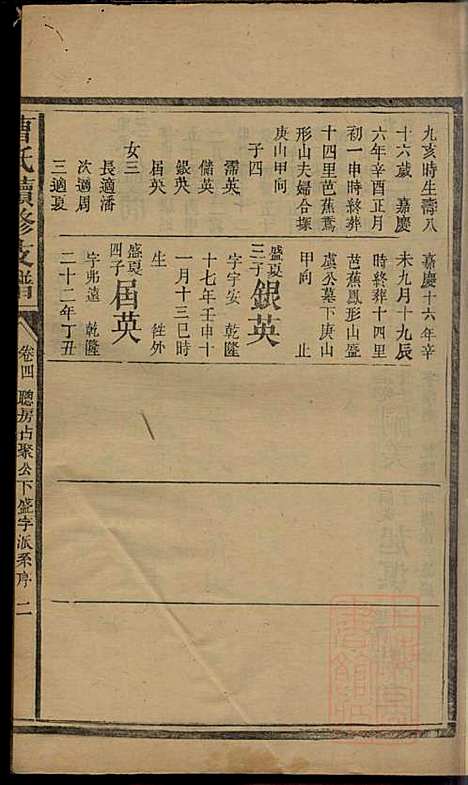 九亥時生壽八
十六歲 嘉慶
六年辛酉正月
初一申時終葬
十四里芭蕉鳶
形山夫婦合塚
庚山甲向
子四
霈英
儲英
銀英
屇英
女三
長適潘
次適周
三適夏
嘉慶十六年辛
未九月十九辰
時終葬十四里
芭蕉鳳形山盛
虞公墓下庚山
甲向 止
盛夏三子 銀英
字宇安 乾隆
十七年壬申十
一月十三巳時
生 往外
盛夏四子 屇英
字弗遠 乾隆
二十二年丁丑
曹氏續修支譜
卷四 聰房占聚公下盛字派系序 二